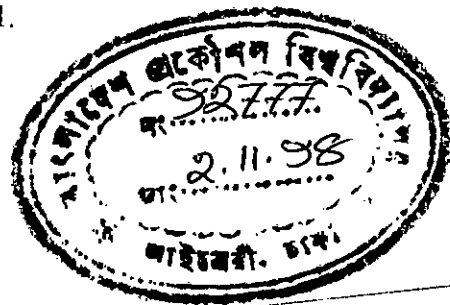 বাংলাদেশ প্রকৌশল বিশ্ববিদ্যালয়
নং.........92777
তাং...2.11.98
লাইব্রেরী. ঢাকা